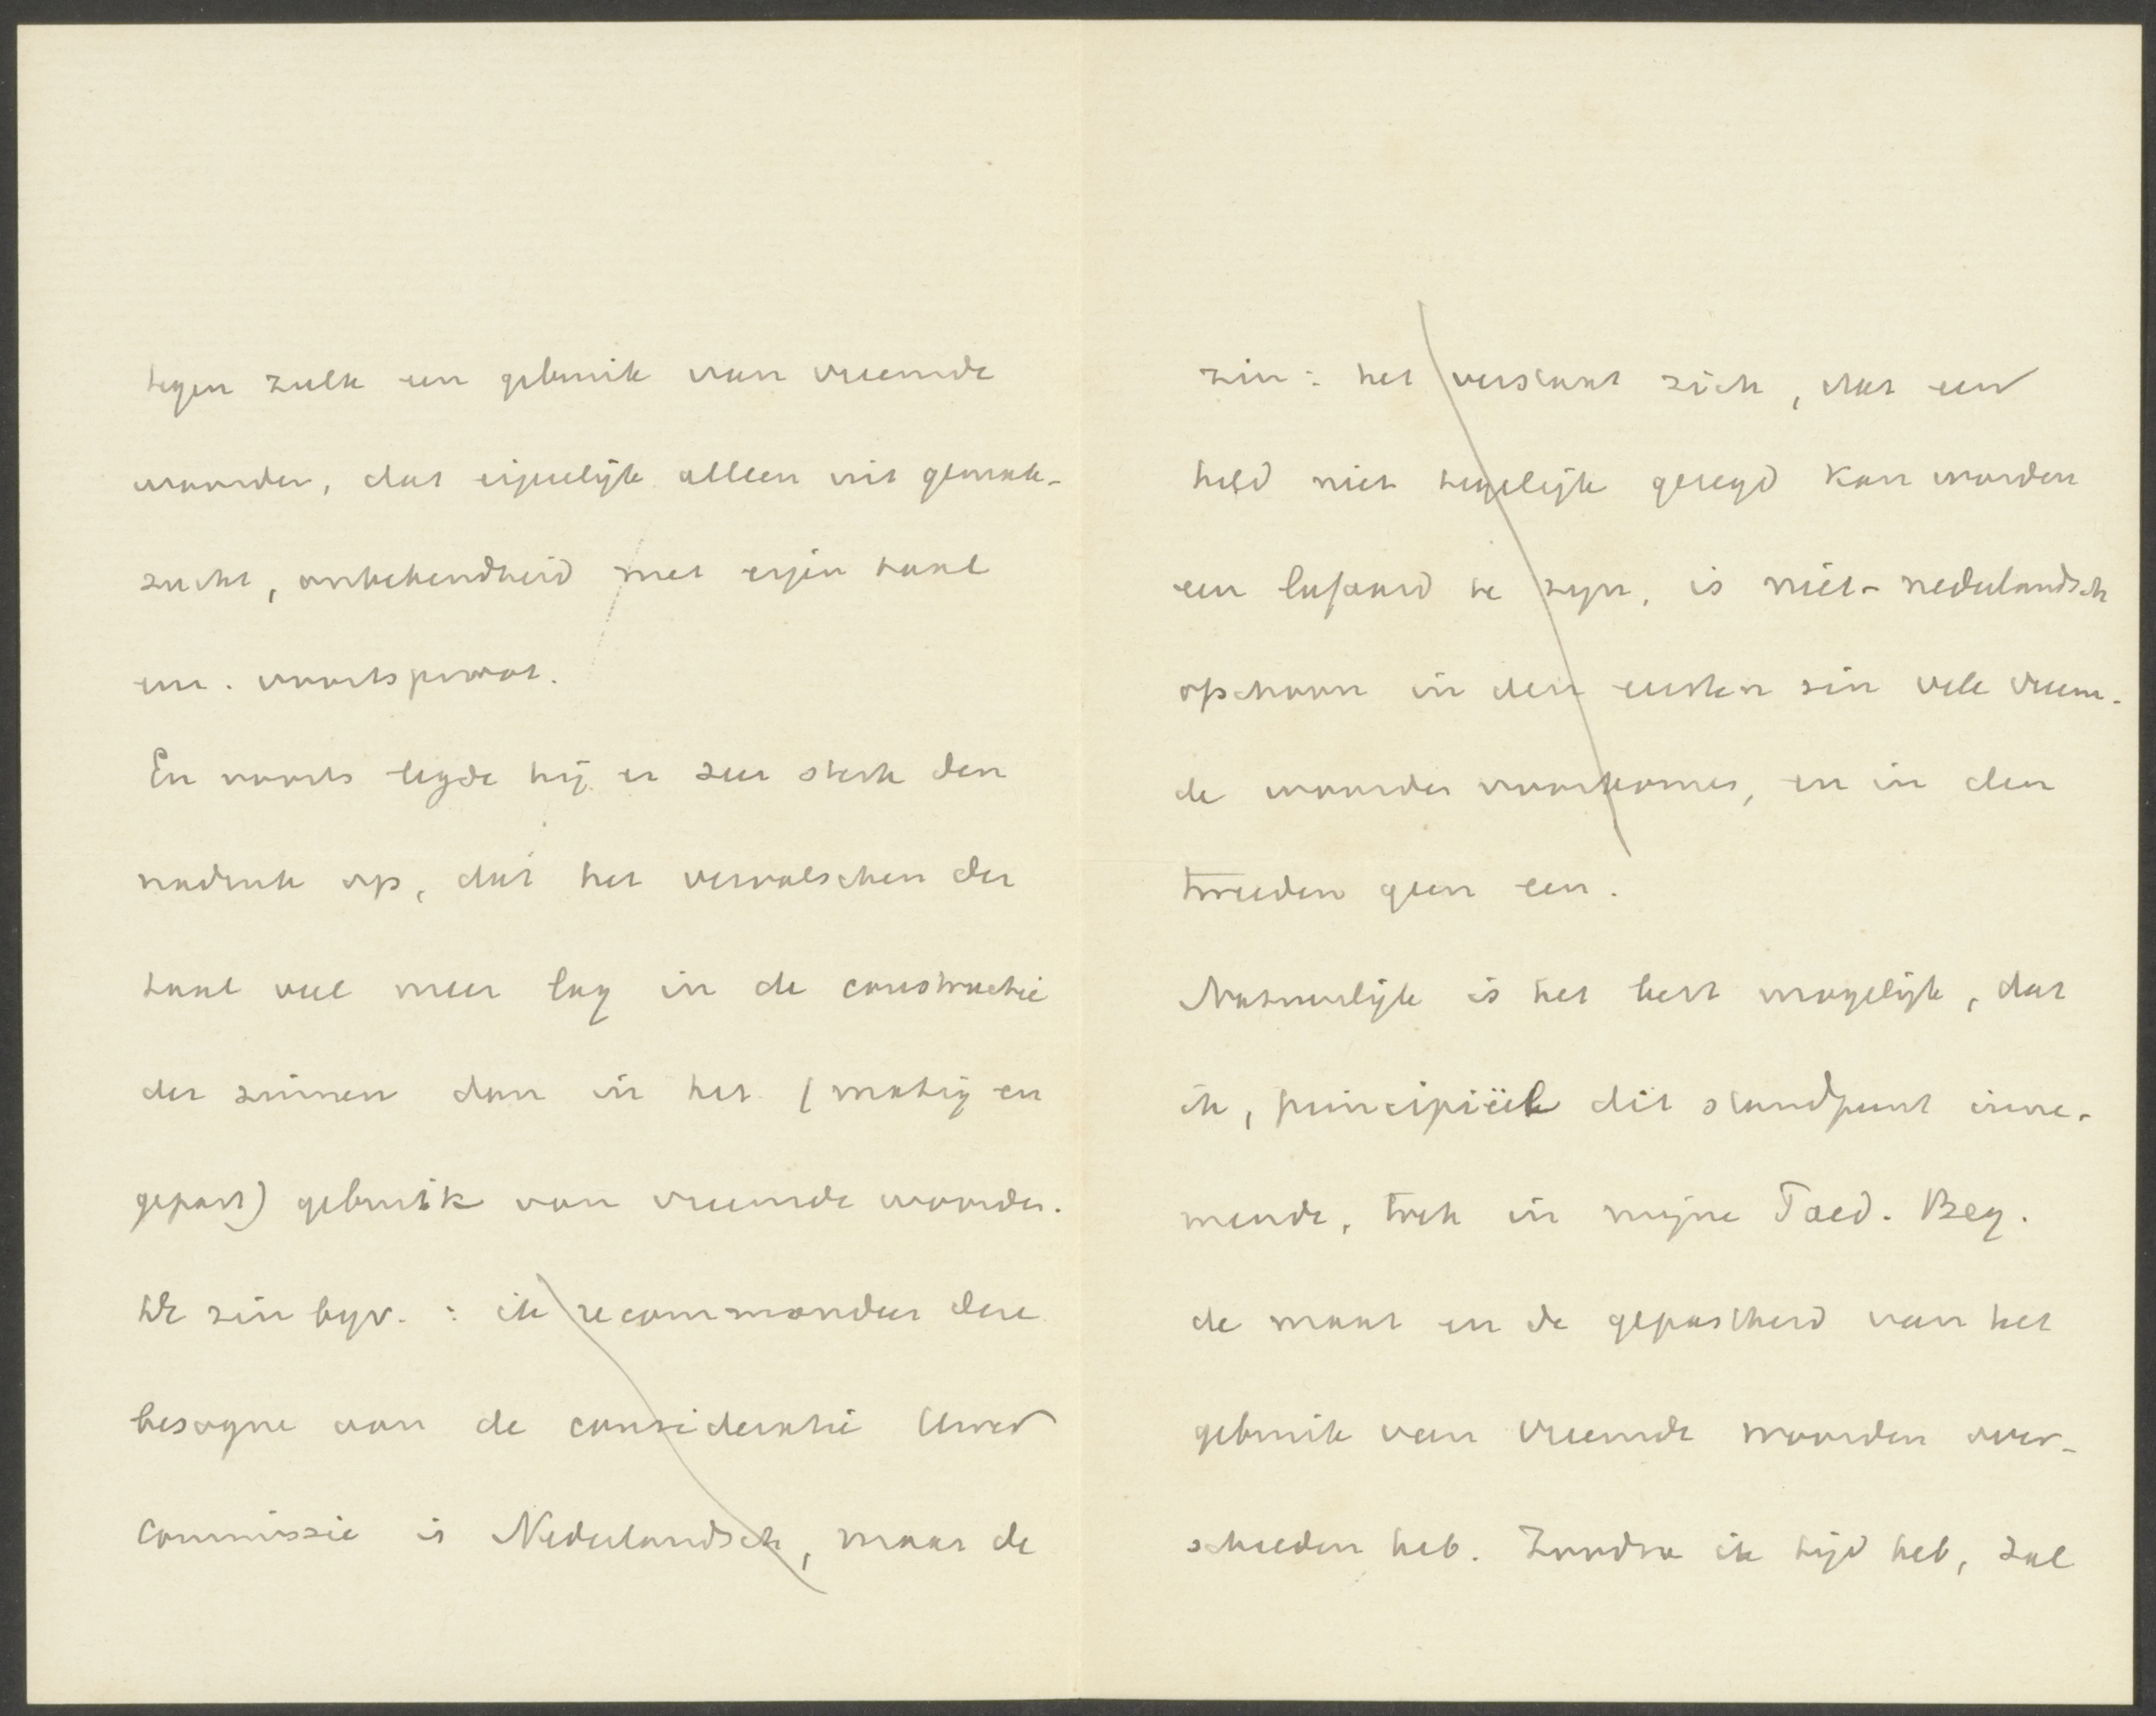 tegen zulk een gebruik van vreemde
woorden, dat eigenlijk alleen uit gemak-
zucht, onbekendheid met eigen taal
enz. voortsproot.
En voorts legde hij er zeer sterk den
nadruk op, dat het vervalschen der
taal veel meer lag in de constructie
der zinnen dan in het (matig en
gepast) gebruik van vreemde woorden.
De zin byv. : ik recommandeer deze
besogne aan de consideratie Uwer
Commissie is Nederlandsch, maar de
zin: het verstaat zich, dat een
held niet tegelijk gezegd kan worden
een lafaard te zyn, is niet-nederlandsch
ofschoon in den eersten zin vele vreem-
de woorden voorkomen, en in den
tweeden geen een.
Natuurlijk is het best mogelijk, dat
ik, principiëel dit standpunt inne-
mende, toch in mijne Paed. Beg.
de maat en de gepastheid van het
gebruik van vreemde woorden over-
schreden heb. Zoodra ik tijd heb, zal